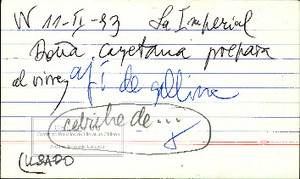 V 11-II-93 La Imperial
Doña Cayetana prepara
al virrey ají de gallina
cebiche de...
(USADO